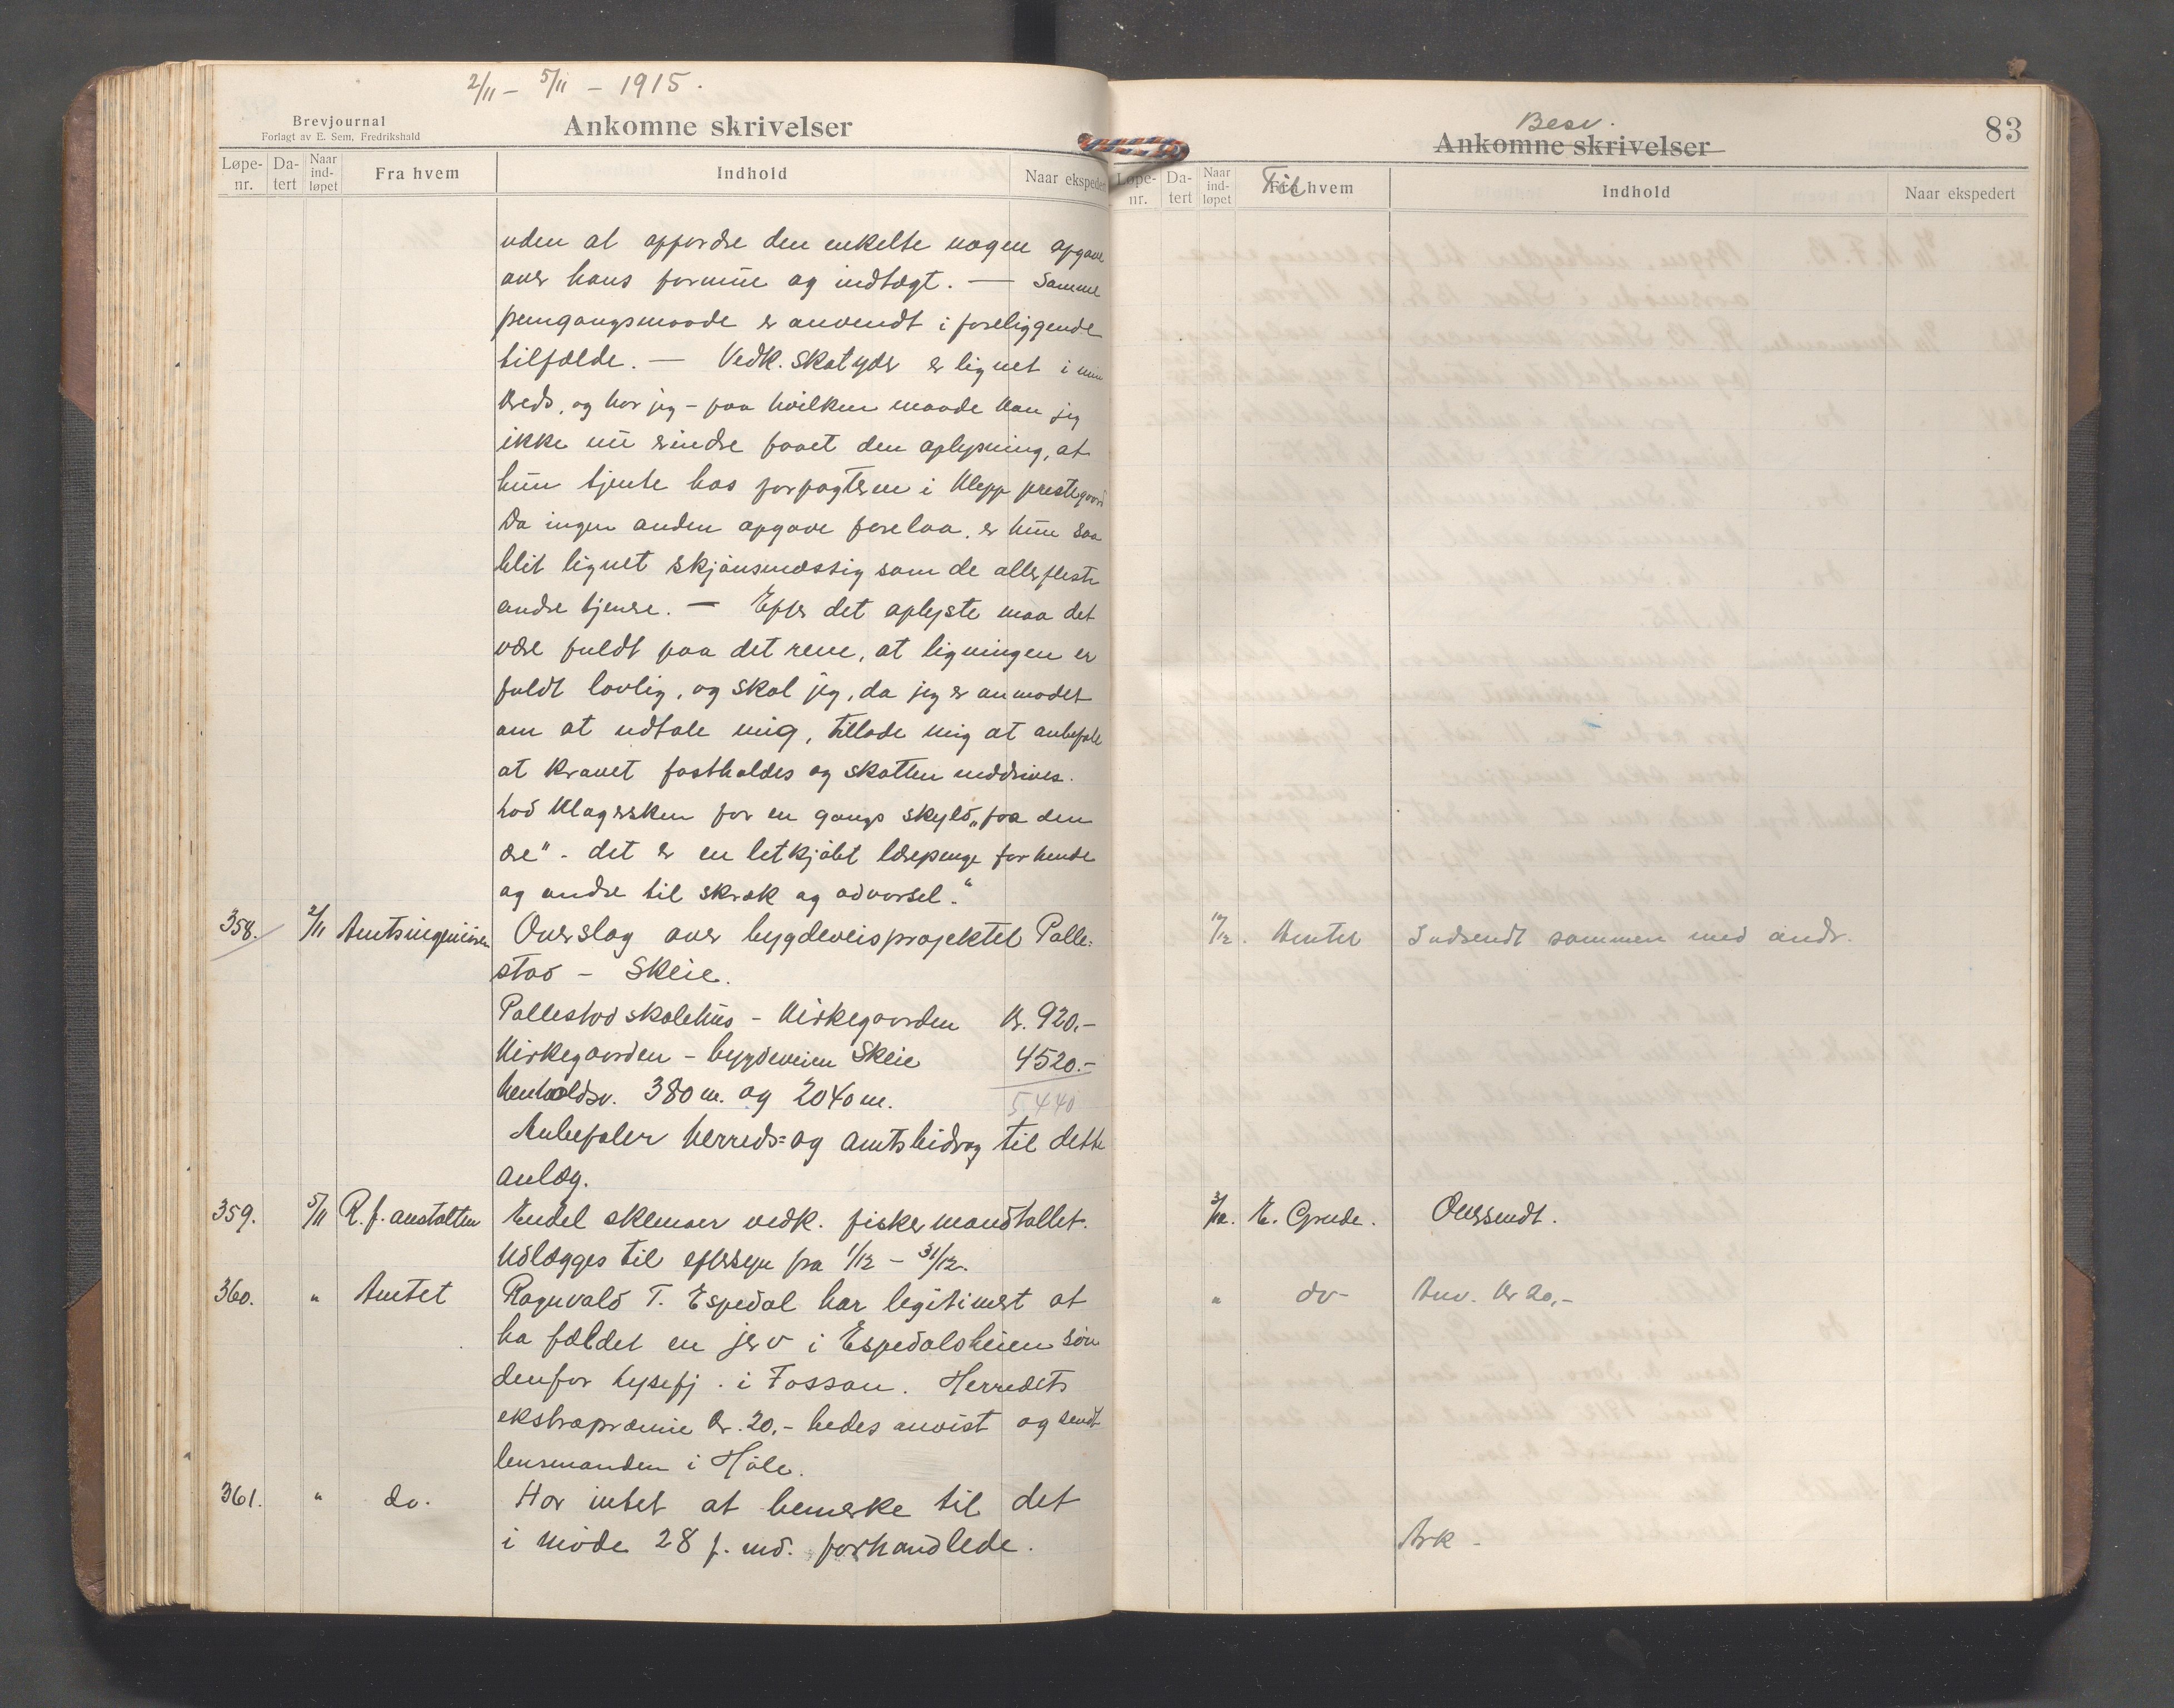 2/11 - 5/11 - 1915.
Brevjournal
Forlagt av E. Sem, Fredrikshald
Ankomne skrivelser
Løpe-nr. Da-tert Naar ind-løpet Fra hvem Indhold Naar ekspedert
uden at opfordre den enkelte nogen opgave
over hans formue og indtægt. — Samme
fremgangsmaade er anvendt i foreliggende
tilfælde. — Vedk. skatyder er lignet i min
kreds, og har jeg - paa hvilken maade kan jeg
ikke nu erindre faaet den oplysning, at
hun tjente hos forpagteren i Klepp prestegaard
Da ingen anden opgave forelaa, er hun saa
blit lignet skjønsmæssig som de allerfleste
andre tjenere. — Efter det oplyste maa det
være fuldt paa det rene, at ligningen er
fuldt lovlig, og skal jeg, da jeg er anmodet
om at udtale mig, tillade mig at anbefale
at kravet fastholdes og skatten inddrives.
Lad klagersken for en gangs skyld „faa den
ære" - det er en letkjøbt lærepenge for hende
og andre til skræk og advarsel."
358. 2/11 Amtsingeniøren Overslag over bygdeveisprojektet Palle-
stad - Skeie.
Pallestad skolehus - Kirkegaarden Kr. 920.-
Kirkegaarden - bygdeveien Skeie 4520.-
henholdsv. 380 m. og 2040 m. 5440
Anbefaler herreds- og amtsbidrag til dette
anlæg.
359. 5/11 R. f. anstalten Endel sklemaer vedk. fiskermandtallet.
Udlægges til eftersyn fra 1/12 - 31/12.
360. " Amtet Ragnvald T. Espedal har legitimert at
ha fældet en jerv i Espedalsheien søn
denfor Lysefj. i Fossan. Herredets
ekstrapræmie Kr. 20,- bedes anvist og sendt
lensmanden i Høle.
361. " do. Har intet at bemerke til det
i møde 28 f. md. forhandlede.
83
Besv.
Ankomne skrivelser
Løpe-nr. Da-tert Naar ind-løpet Fra hvem Til Indhold Naar ekspedert
17/12. Amtet Indsendt sammen med andr.
3/12. E. Grude. Oversendt.
" do- Anv. Kr 20,-
Ark -